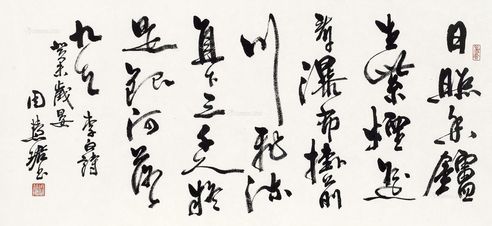 日照香鑪
生紫煙遥
看瀑布掛前
川飛流
直下三千尺疑
是銀河落
九天 李白詩
癸未歲晏
周慧珺书